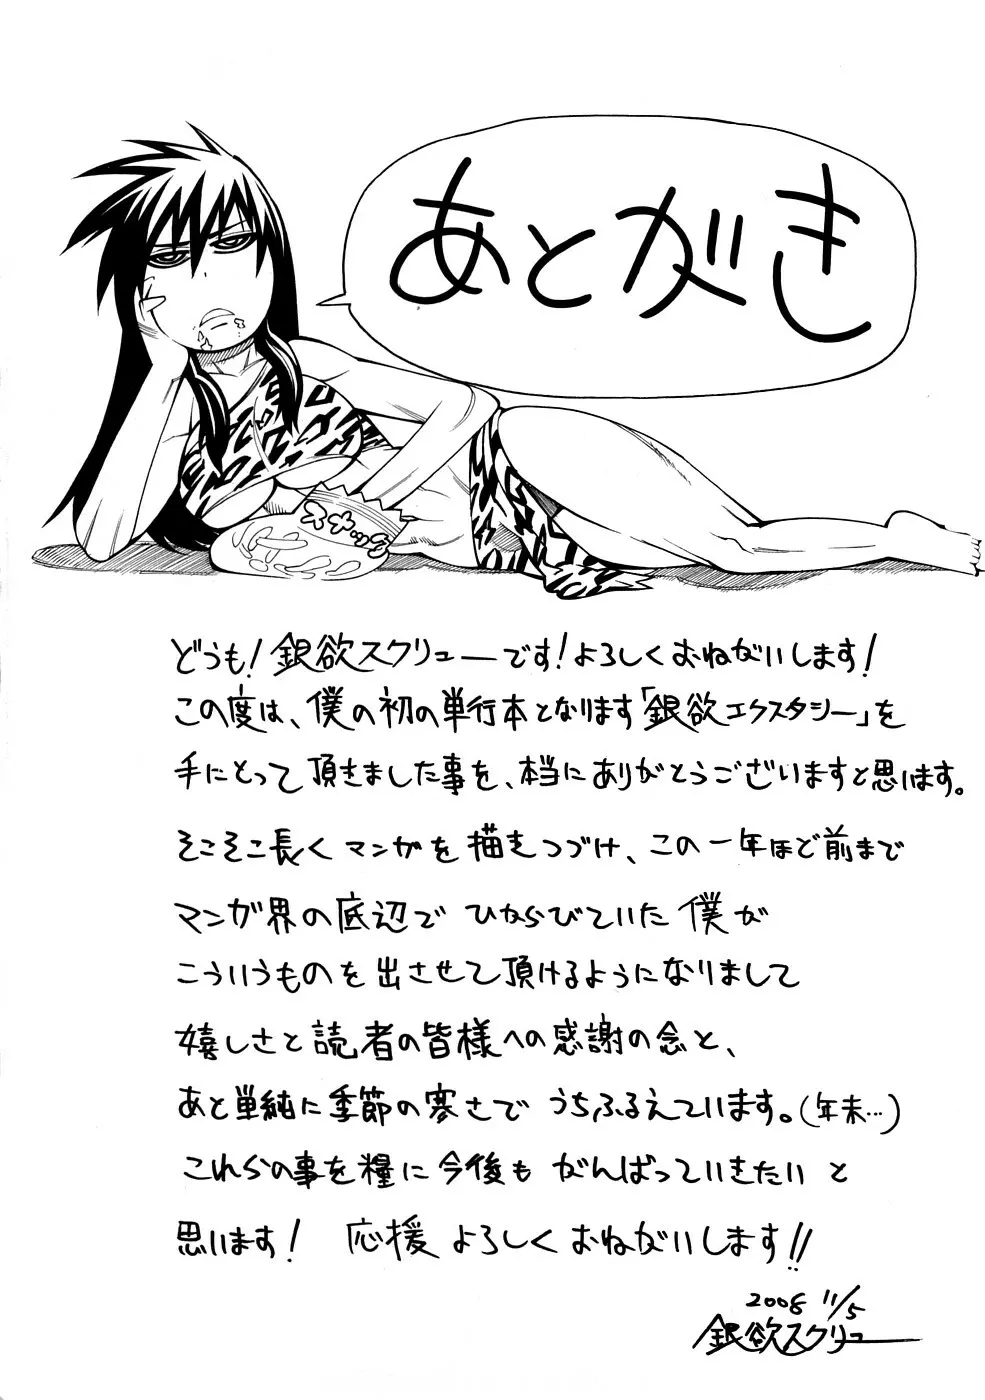 あとがき
スナック
どうも！銀欲スクリューです！よろしくおねがいします！
この度は、僕の初の単行本となります「銀欲エクスタシー」を
手にとって頂きました事を、本当にありがとうございますと思います。
そこそこ長くマンガを描きつづけ、この一年ほど前まで
マンガ界の底辺でひからびていた僕が
こういうものを出させて頂けるようになりまして
嬉しさと読者の皆様への感謝の念と、
あと単純に季節の寒さでうちふるえています。(年末…)
これらの事を糧に今後もがんばっていきたいと
思います！　応援よろしくおねがいします!!
2008 11/5
銀欲スクリュー